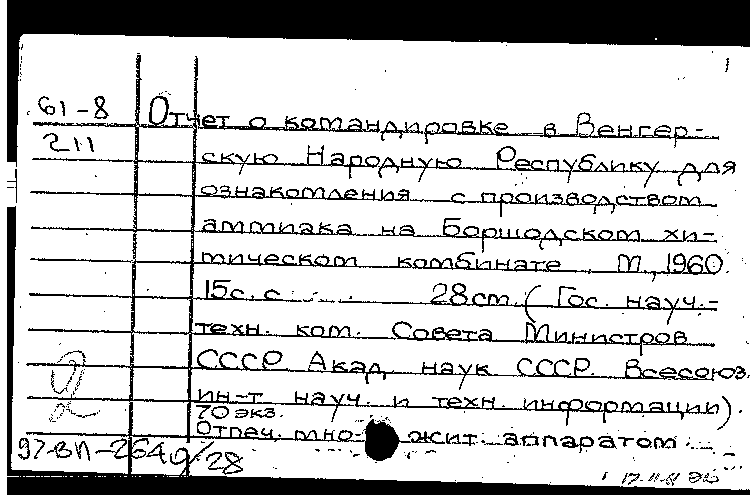 61-8 Отчет о командировке в Венгер-
211 скую Народную Республику для
ознакомления с производством
аммиака на Боршодском хи-
мическом комбинате. М., 1960.
15с. с 28см. (Гос. науч.-
техн. ком. Совета Министров
СССР. Акад. наук СССР. Всесоюз.
ин-т науч. и техн. информации).
70 экз.
Отпеч. мно- жит. аппаратом.
2
97-ВП-2640/28